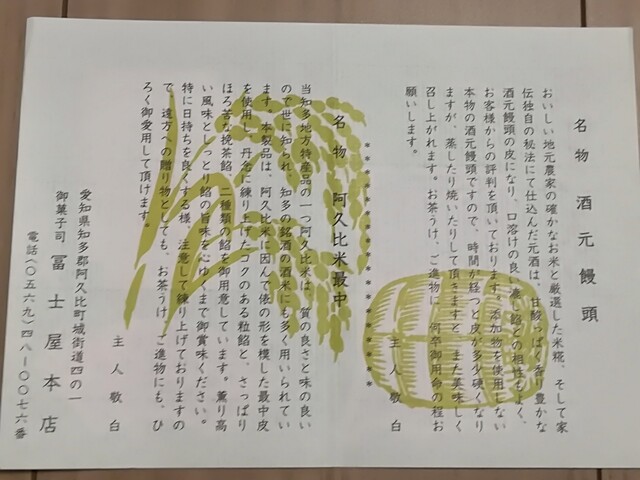 名物 酒元饅頭
おいしい地元農家の確かなお米と厳選した米糀、そして家
伝独自の秘法にて仕込んだ元酒は、甘酸っぱく香り豊かな
酒元饅頭の皮になり、口溶けの良い漉し餡との相性もよく、
お客様からの評判を頂いております。添加物を使用しない
本物の酒元饅頭ですので、時間が経つと皮が多少硬くなり
ますが、蒸したり焼いたりして頂きますと、また美味しく
召し上がれます。お茶うけ、ご進物に、何卒御用命の程お
願いします。
主人敬白
名物 阿久比米最中
当知多地方特産品の一つ阿久比米は、質の良さと味の良い
ので世に知られ、知多の銘酒の酒米にも多く用いられてい
ます。本製品は、阿久比米に因んで俵の形を模した最中皮
を使用し、丹念に練り上げたコクのある粒餡と、さっぱり
ほろ苦な挽茶餡、二種類の餡を御用意しています。薫り高
い風味としっとり餡の旨味を心ゆくまで御賞味ください。
特に日持ちを良くする様、注意して練り上げておりますの
で、遠方への贈り物としても、お茶うけ、ご進物にも、ひ
ろく御愛用して頂けます。
主人敬白
愛知県知多郡阿久比町城街道四の一
御菓子司 冨士屋本店
電話(〇五六九)四八―〇〇七六番